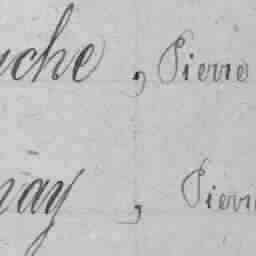 uche, Pierre
nay, Pierre